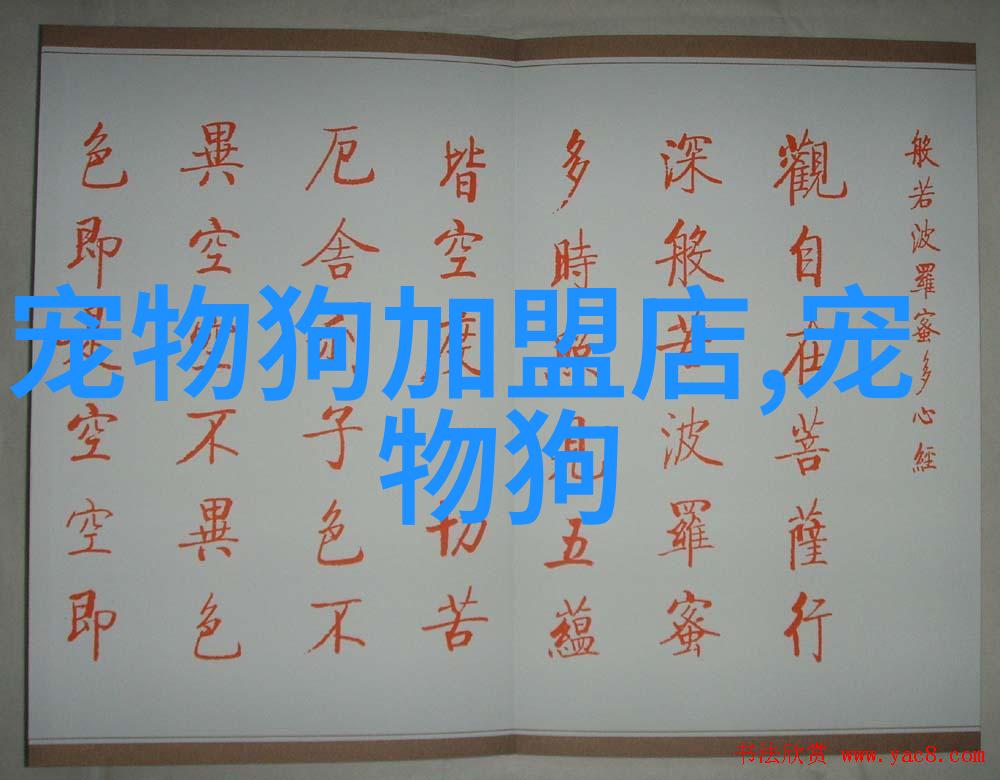 般若波羅蜜多心經
觀自在菩薩行
深般若波羅蜜
多時照見五蘊
皆空度切苦
厄舍利子色不
異空空不異色
色即是空空即
宠物狗加盟店,宠
物狗
书法欣赏 www.yac8.com